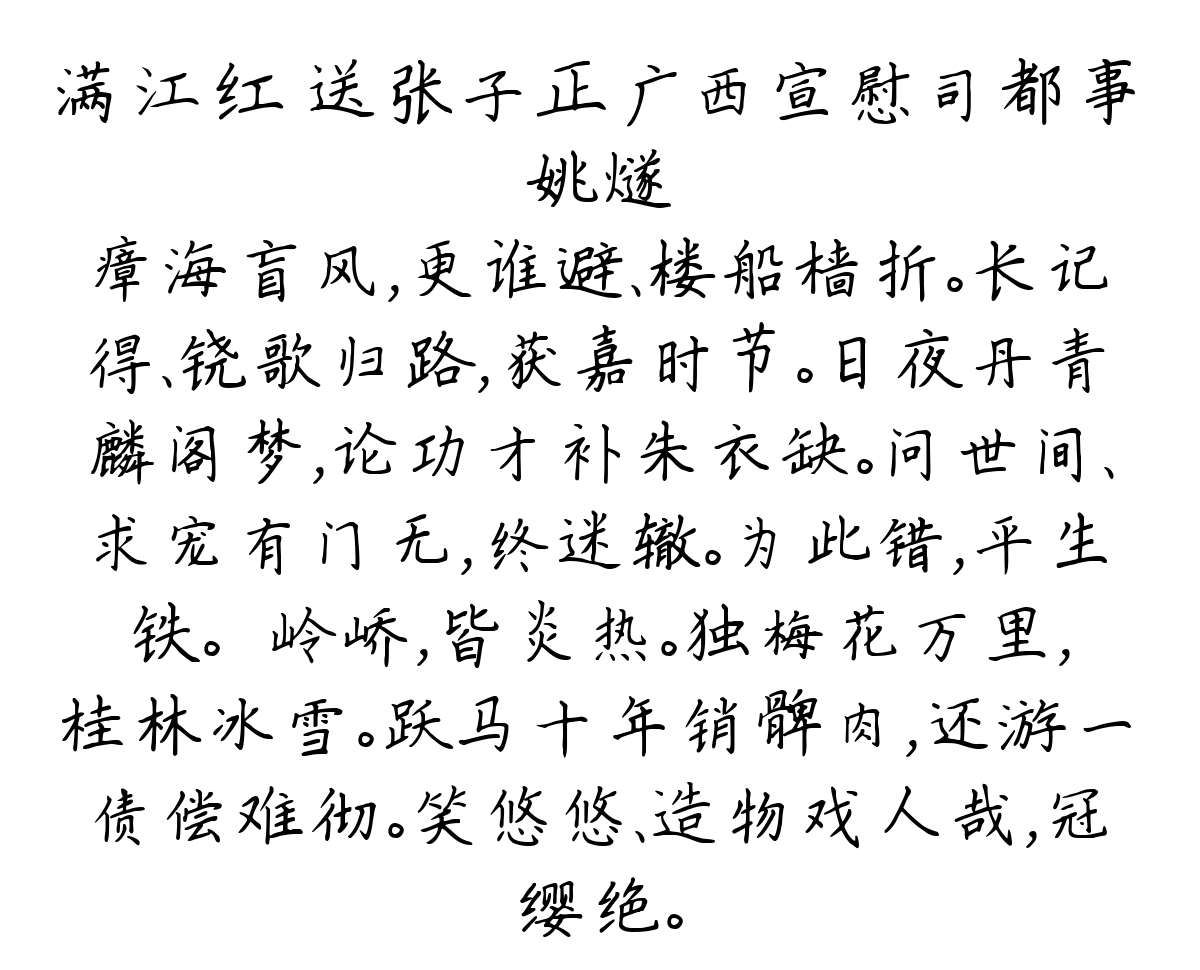 满江红送张子正广西宣慰司都事
姚燧
瘴海盲风,更谁避、楼船樯折。长记
得、铙歌归路,获嘉时节。日夜丹青
麟阁梦,论功才补朱衣缺。问世间、
求宠有门无,终迷辙。为此错,平生
铁。岭峤,皆炎热。独梅花万里,
桂林冰雪。跃马十年销髀肉,还游一
债偿难彻。笑悠悠、造物戏人哉,冠
缨绝。